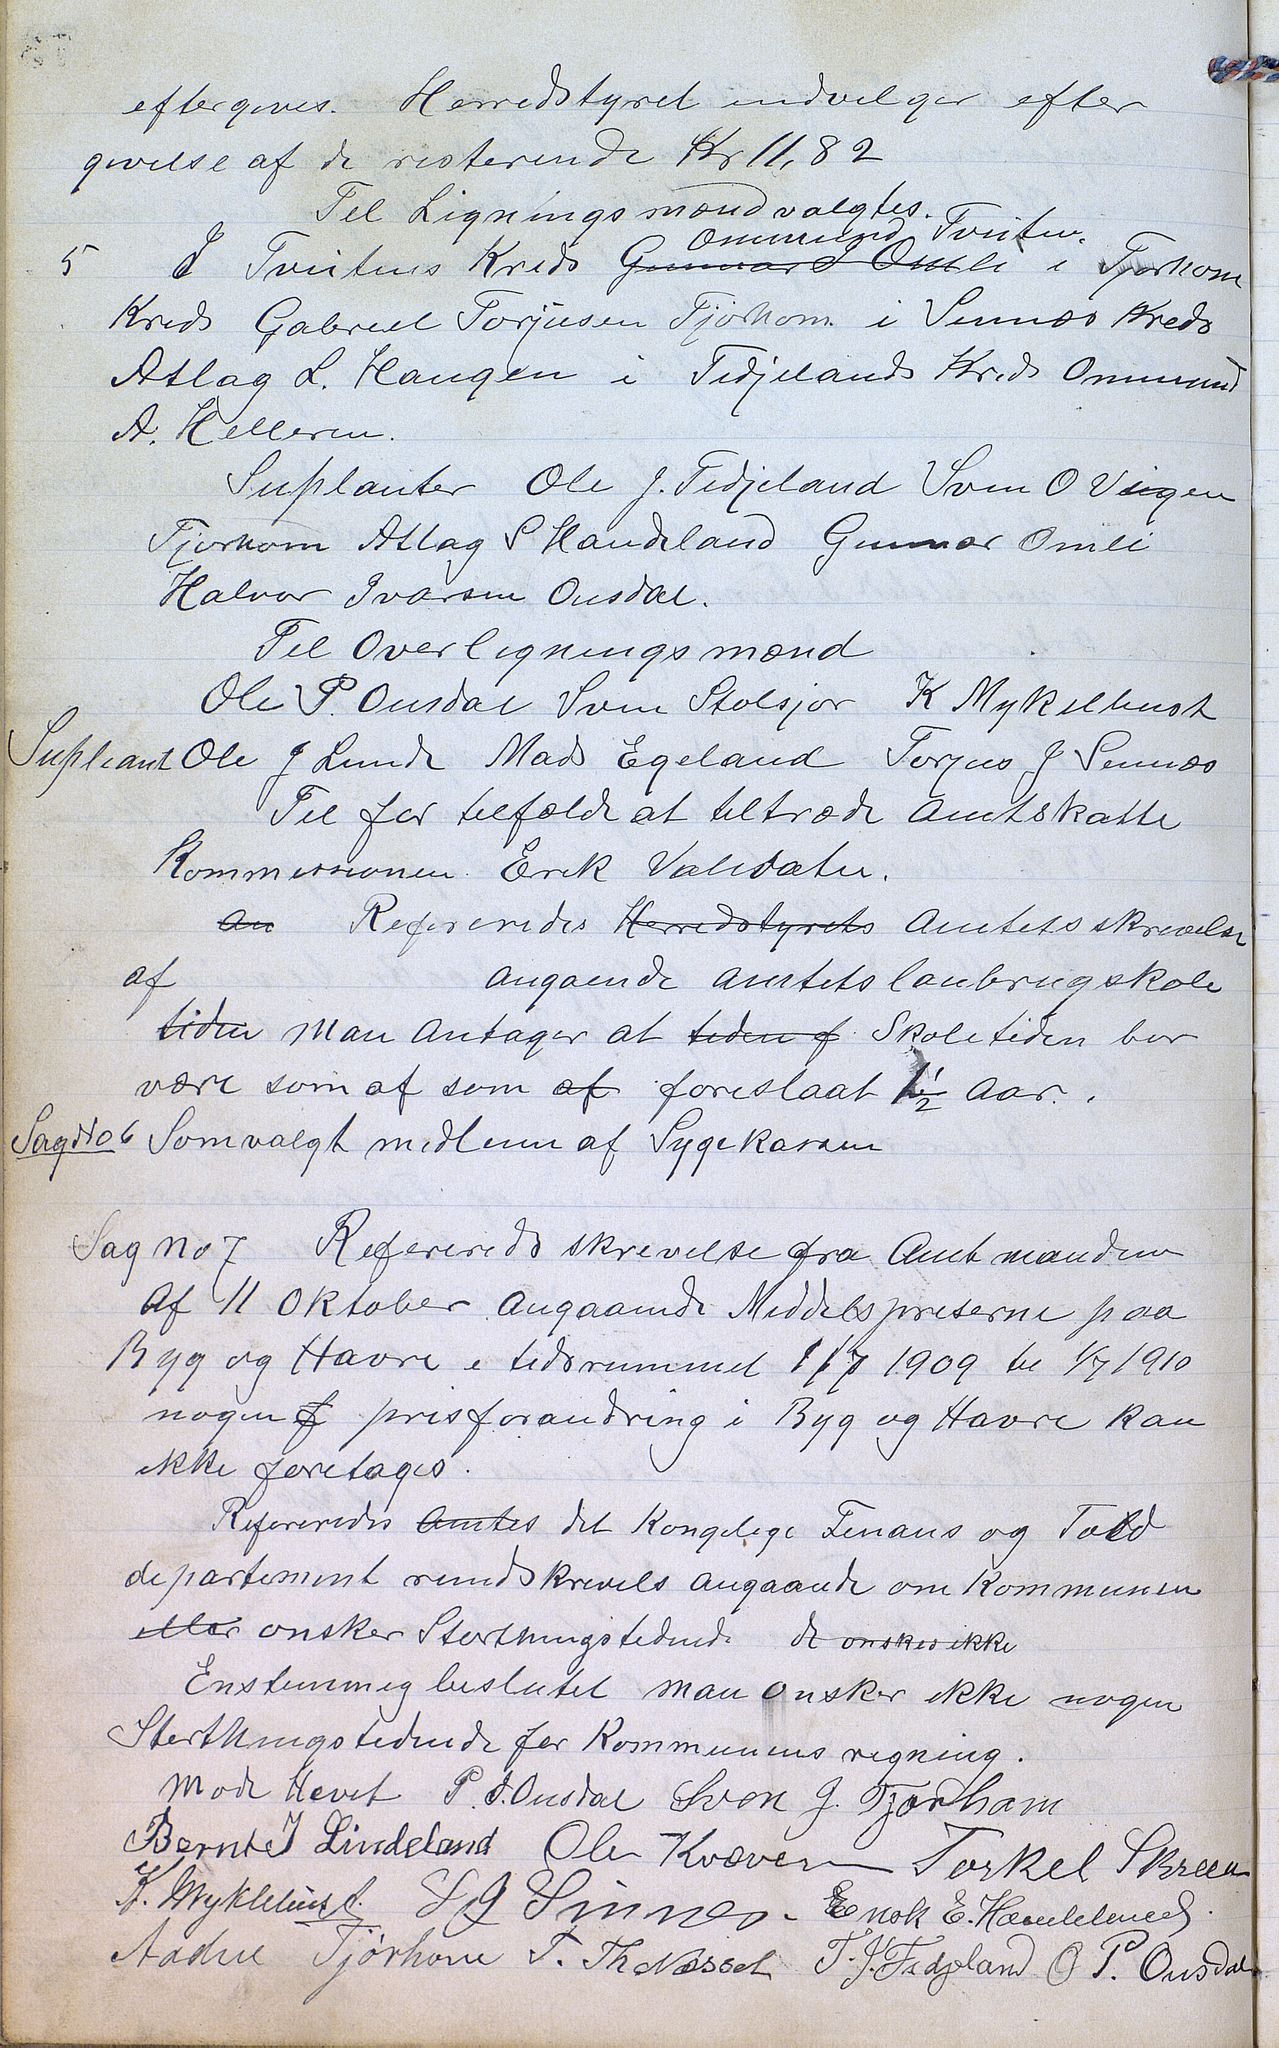 eftergives. Herredstyret indvelger efter
givelse af de resterende Kr 11,82
Til Ligningsmænd valgtes.
Ommund Tveiten.
5 I Tveitens Kreds Gunnar I Omli i Tjorhom
Kreds Gabriel Torjusen Tjorhom i Sennæs Kreds
Atlag L. Haugen i Fidjelands Kreds Ommund
A. Helleren.
Suplanter Ole J. Fidjeland Sven O Veigen
Tjorhom Atlag S Handeland Gunnar Omli
Halvor Ivarsen Ousdal.
Til Overligningsmænd
Ole P. Ousdal Sven Stolsjor K Mykelbust
Supleant Ole J Lunde Mads Egeland Torjus J Sennæs
Til for telfælde at tiltræde Amtskatte
Kommissionen Erik Valevatn.
an Refereredes Herredstyrets Amtets skrevelse
af angaende amtets lanbrugskole
tiden Man antager at tiden f Skoletiden bor
være som af som af foreslaat 1 1/2 aar.
Sag No 6 Som valgt medlem af Sygekassen
Sag No 7 Referereds skrevelse fra Amtmanden
af 11 Oktober angaaende Middelspreserne paa
Byg og Havre i tidsrummel 1/7 1909 te 1/7 1910
nogen f prisforandring i Byg og Havre kan
ikke foretages.
Refereredes Amtes det Kongelige Fenans og Told
departement rundskrevels angaaende om Kommunen
eller onsker Storthingstedende de onskes ikke
Enstemmig beslutet man onsker ikke nogen
Storthingstedende for Kommunens regning.
Mode Hevet P. S. Ousdal Sven J. Tjorham
Bernt J Lindeland Ole Kvæven Torkel Skreen
K. Myklebust. S J Sinnes. Enok E. Handeland.
Aadne Tjørhom T. Th Næsset T. J. Fidjeland O P. Ousdal